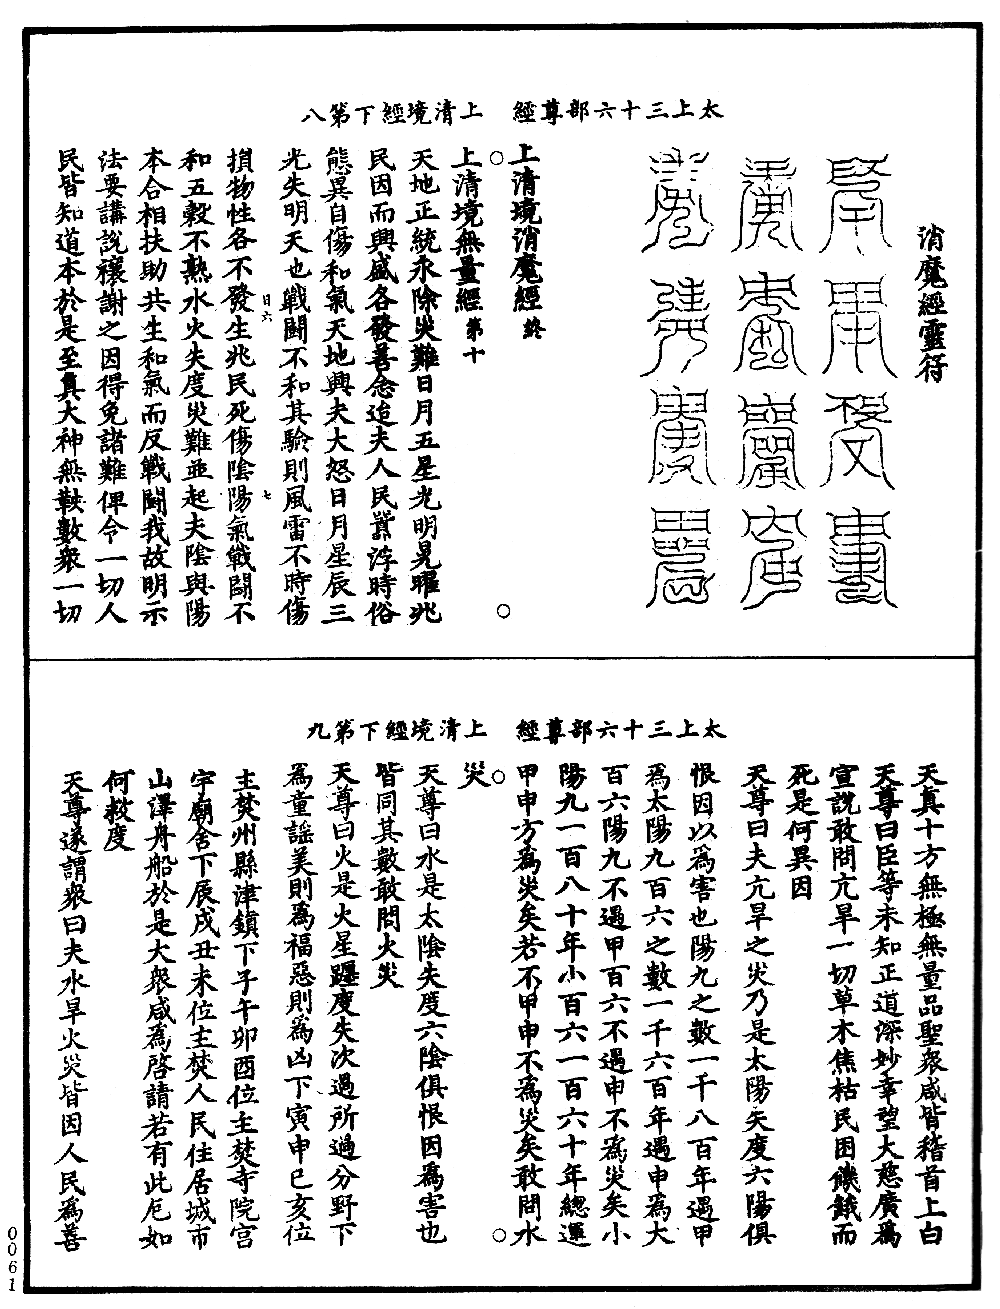 太上三十六部尊經　上清境經下第八
消魔經靈符
上清境消魔經終
上清境無量經第十
天地正統永除災難日月五星光明晃曜兆
民因而興盛各發善念迨夫人民囂浮時俗
態異自傷和氣天地興夫大怒日月星辰三
光失明天也戰鬪不和其驗則風雷不時傷
日六　七
損物性各不發生兆民死傷陰陽氣戰鬪不
和五穀不熟水火失度災難並起夫陰與陽
本合相扶助共生和氣而反戰鬪我故明示
法要講說禳謝之因得免諸難俾令一切人
民皆知道本於是至真大神無鞅數衆一切
太上三十六部尊經　上清境經下第九
天真十方無極無量品聖衆咸皆稽首上白
天尊曰臣等未知正道深妙幸望大慈廣爲
宣說敢問亢旱一切草木焦枯民困饑餓而
死是何異因
天尊曰夫亢旱之災乃是太陽失度六陽俱
恨因以爲害也陽九之數一千八百年遇甲
爲太陽九百六之數一千六百年遇申爲大
百六陽九不遇甲百六不遇申不爲災矣小
陽九一百八十年小百六一百六十年總運
甲申方爲災矣若不甲申不爲災矣敢問水
災
天尊曰水是太陰失度六陰俱恨因爲害也
皆同其數敢問火災
天尊曰火是火星躔度失次過所過分野下
爲童謡美則爲福惡則爲凶下寅申巳亥位
主焚州縣津鎮下子午卯酉位主焚寺院宫
宇廟舍下辰戌丑未位主焚人民住居城市
山澤舟船於是大衆咸爲啓請若有此厄如
何救度
天尊遂謂衆曰夫水旱火災皆因人民爲善
0061